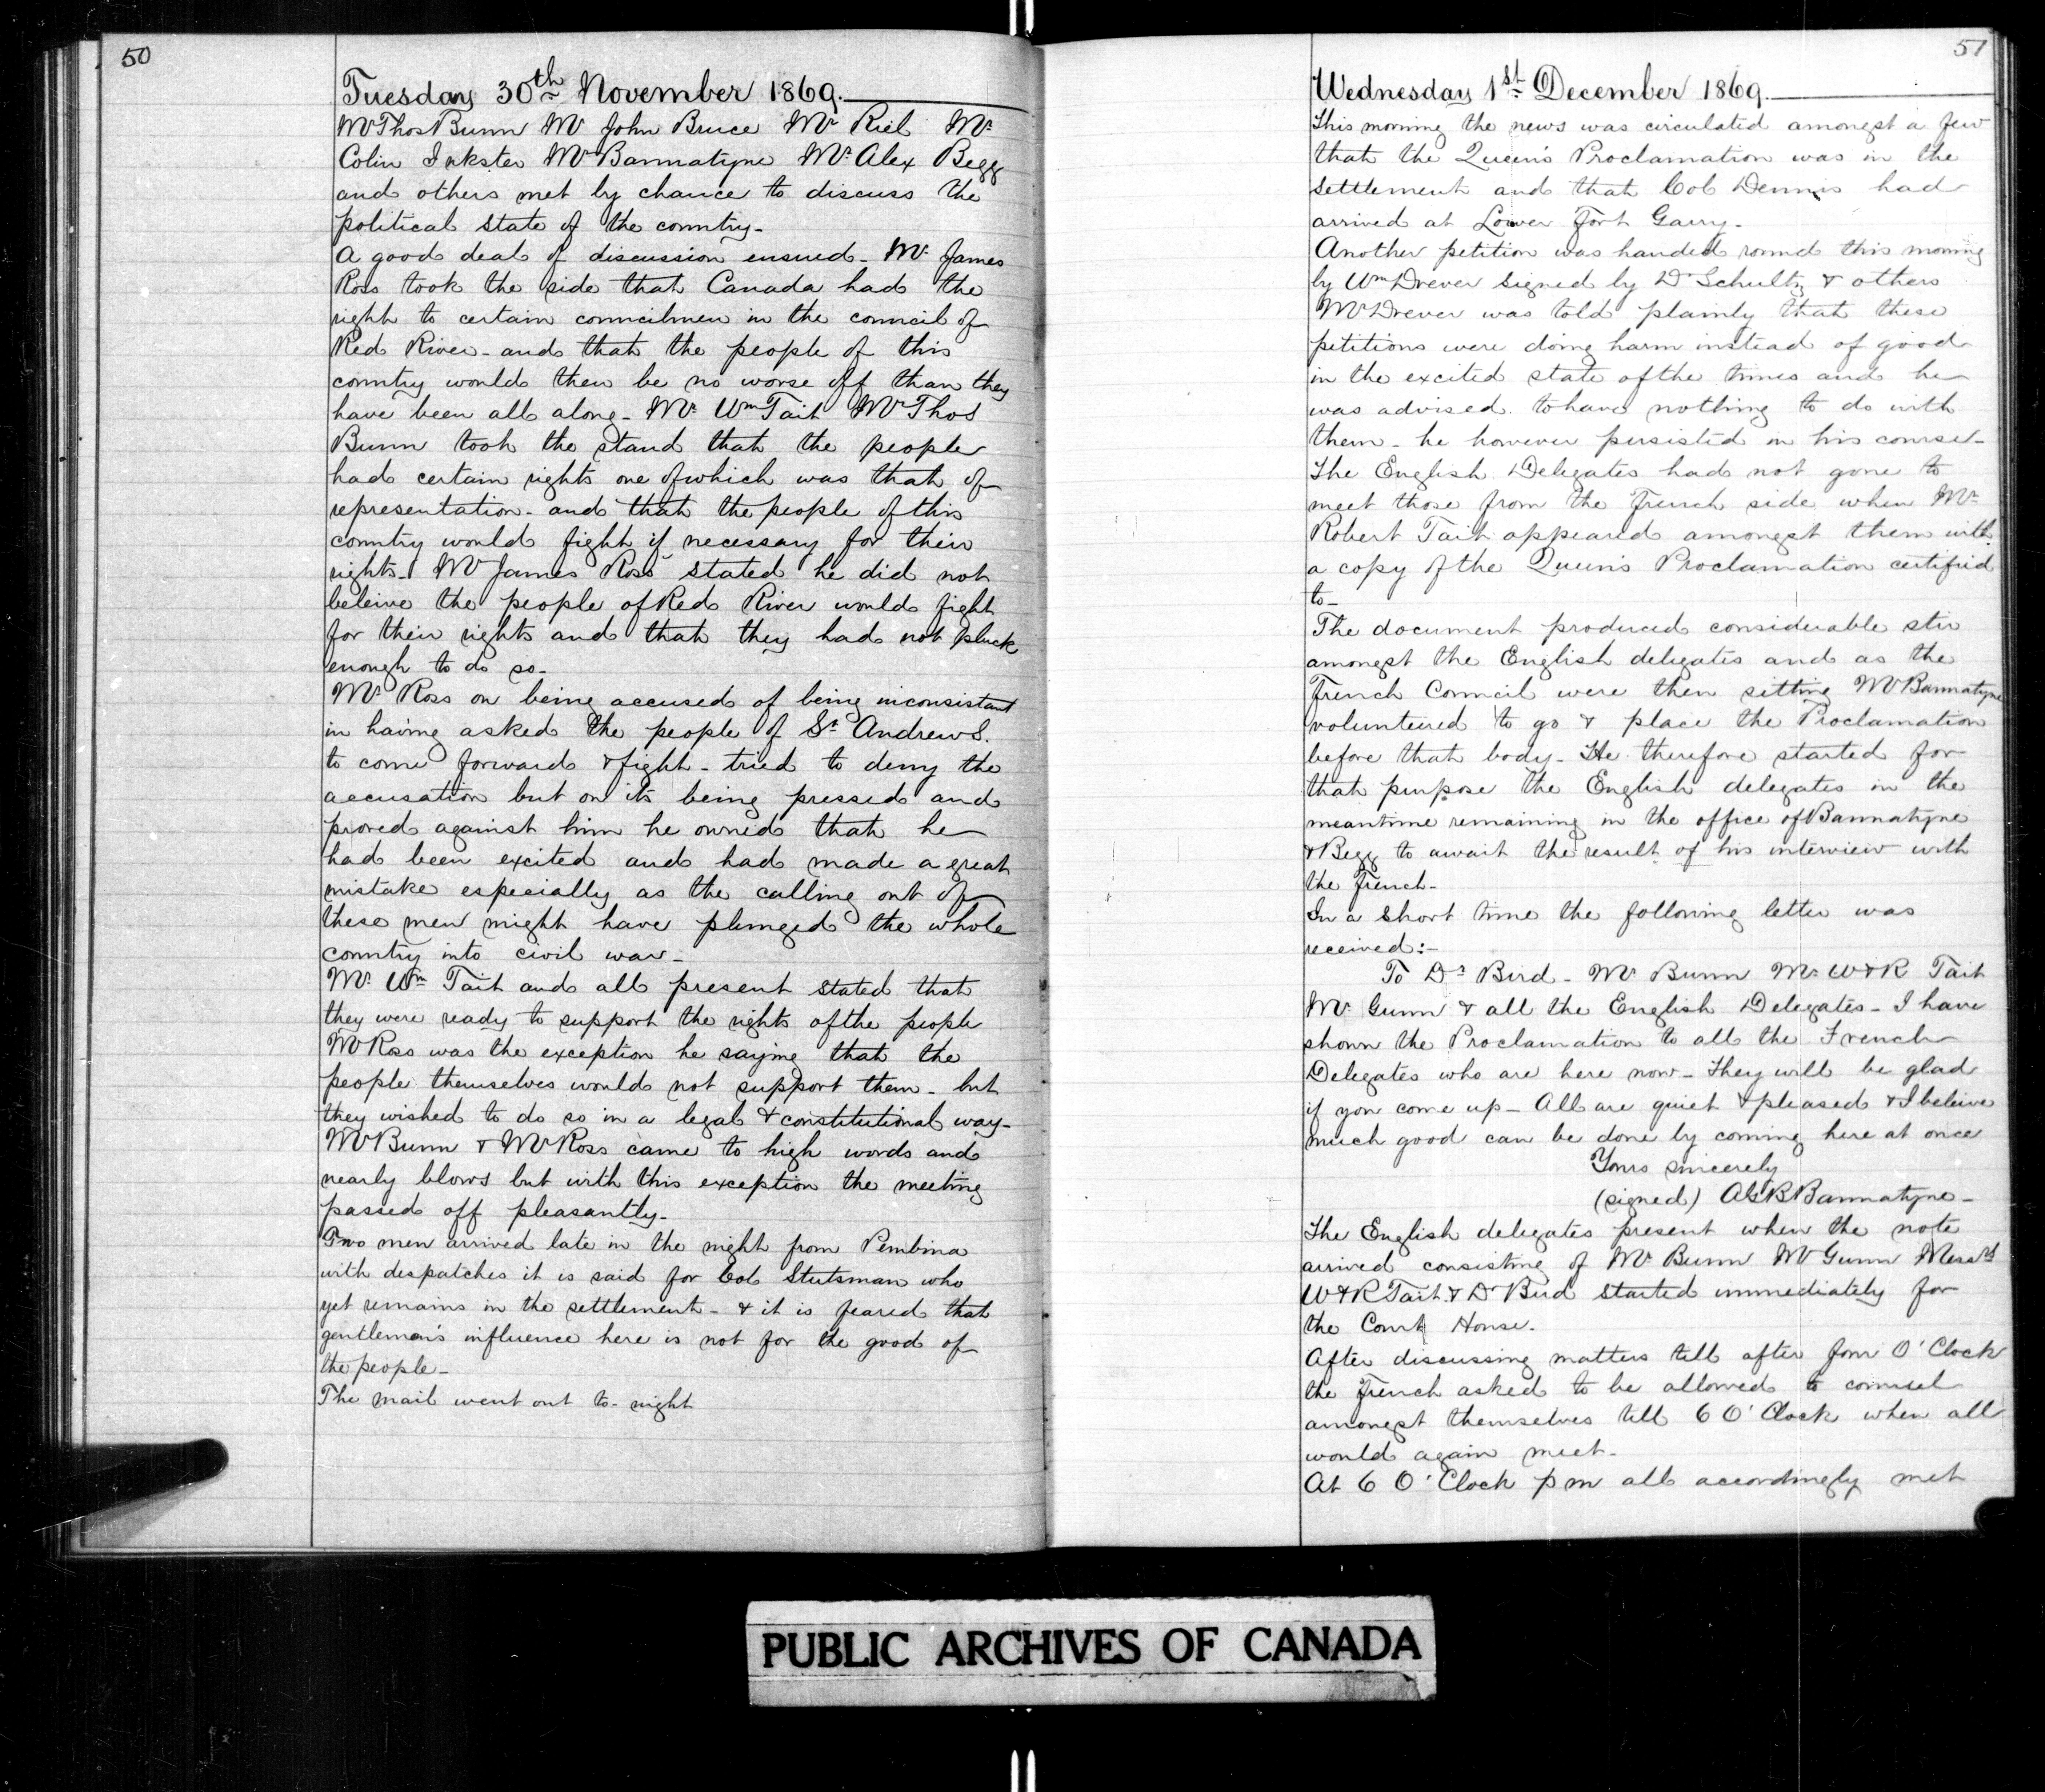 50
Tuesday 30th November 1869.
Mr Thos Bunn Mr John Bruce Mr Riel Mr
Colin Inkster Mr Bannatyne Mr Alex Begg
and others met by chance to discuss the
political state of the country-
A good deal of discussion ensued- Mr James
Ross took the side that Canada had the
right to certain councilmen in the council of
Red River- and that the people of this
country would then be no worse off than they
have been all along- Mr Wm Tait Mr Thos
Bunn took the stand that the people
had certain rights one of which was that of
representation- and that the people of this
country would fight if necessary for their
rights- Mr James Ross stated he did not
beleive the people of Red River would fight
for their rights and that they had not pluck
enough to do so-
Mr Ross on being accused of being inconsistant
in having asked the people of St Andrews.
to come forward & fight- tried to deny the
accusation but on its being pressed and
proved against him he owned that he
had been excited and had made a great
mistake especially as the calling out of
these men might have plunged the whole
country into civil war-
Mr Wm Tait and all present stated that
they were ready to support the rights of the people
Mr Ross was the exception he saying that the
people themselves would not support them- but
they wished to do so in a legal & constitutional way-
Mr Bunn & Mr Ross came to high words and
nearly blows but with this exception the meeting
passed off pleasantly-
Two men arrived late in the night from Pembina
with despatches it is said for Col Stutsman who
yet remains in the settlement- & it is feared that
gentleman's influence here is not for the good of
the people-
The mail went out to-night
51
Wednesday 1st December 1869.
This morning the news was circulated amongst a few
that the Queen's Proclamation was in the
settlement and that Col Dennis had
arrived at Lower Fort Garry-
Another petition was handed round this morning
by Wm Drever signed by Dr Schultz & others
Mr Drever was told plainly that these
petitions were doing harm instead of good
in the excited state of the times and he
was advised to have nothing to do with
them- he however persisted in his course-
The English Delegates had not gone to
meet those from the French side when Mr
Robert Tait appeared amongst them with
a copy of the Queen's Proclamation certified
to-
The document produced considerable stir
amongst the English delegates and as the
French Council were then sitting Mr Bannatyne
volunteered to go & place the Proclamation
before that body- He therefore started for
that purpose the English delegates in the
meantime remaining in the office of Bannatyne
& Begg to await the result of his interview with
the French-
In a short time the following letter was
received:-
To Dr Bird- Mr Bunn Mr W & R Tait
Mr Gunn & all the English Delegates- I have
shown the Proclamation to all the French
Delegates who are here now- They will be glad
if you come up- All are quiet & pleased & I beleive
much good can be done by coming here at once
Yours sincerely
(signed) AGB Bannatyne-
The English delegates present when the note
arrived consisting of Mr Bunn Mr Gunn Messrs
W & R Tait & Dr Bird started immediately for
the Court House.
After discussing matters till after four O'Clock
the French asked to be allowed to counsel
amongst themselves till 6 O'Clock when all
would again meet-
At 6 O'Clock pm all accordingly met
PUBLIC ARCHIVES OF CANADA